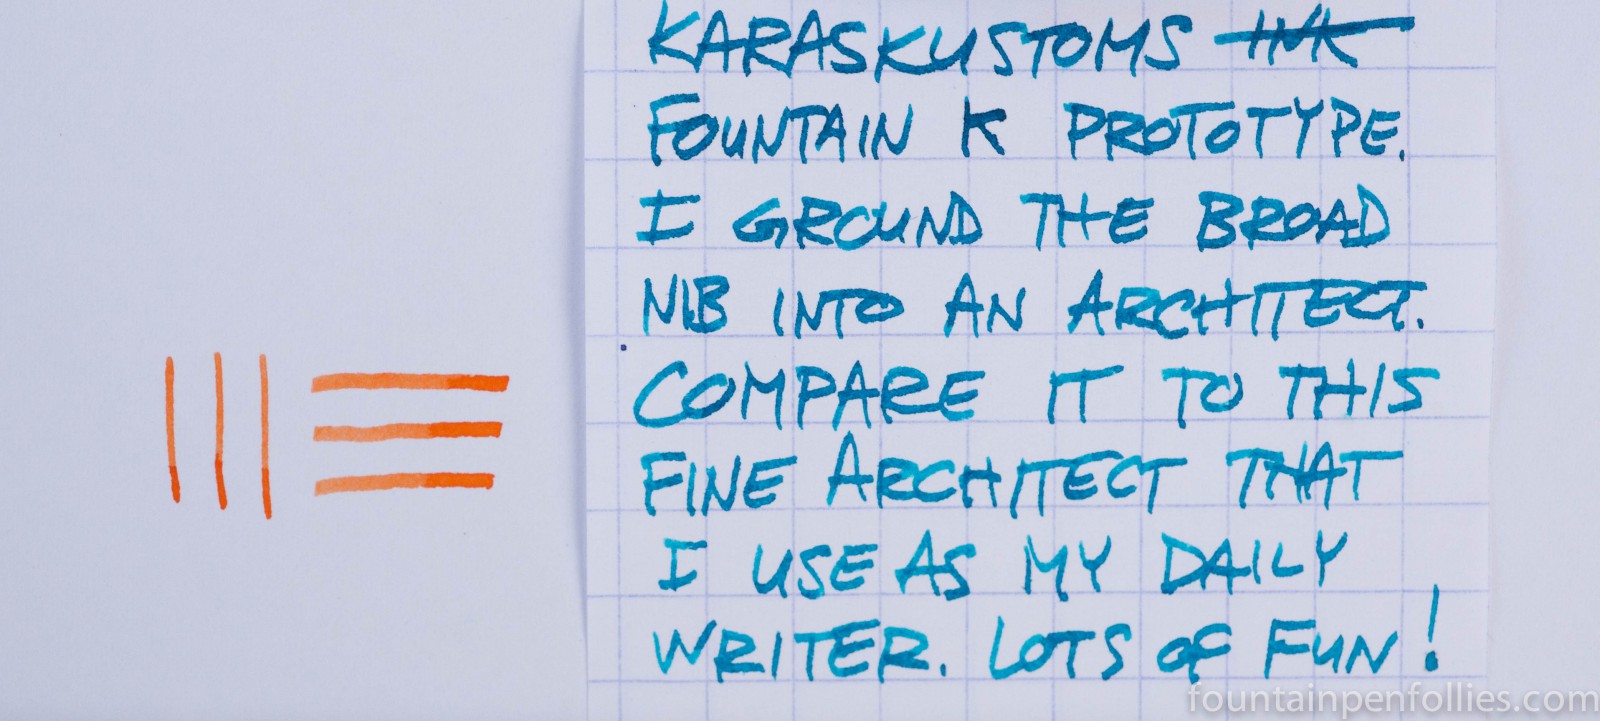 KARASKUSTOMS INK
FOUNTAIN K PROTOTYPE.
I GROUND THE BROAD
NIB INTO AN ARCHITECT.
COMPARE IT TO THIS
FINE ARCHITECT THAT
I USE AS MY DAILY
WRITER. LOTS OF FUN!
fountainpenfollies.com